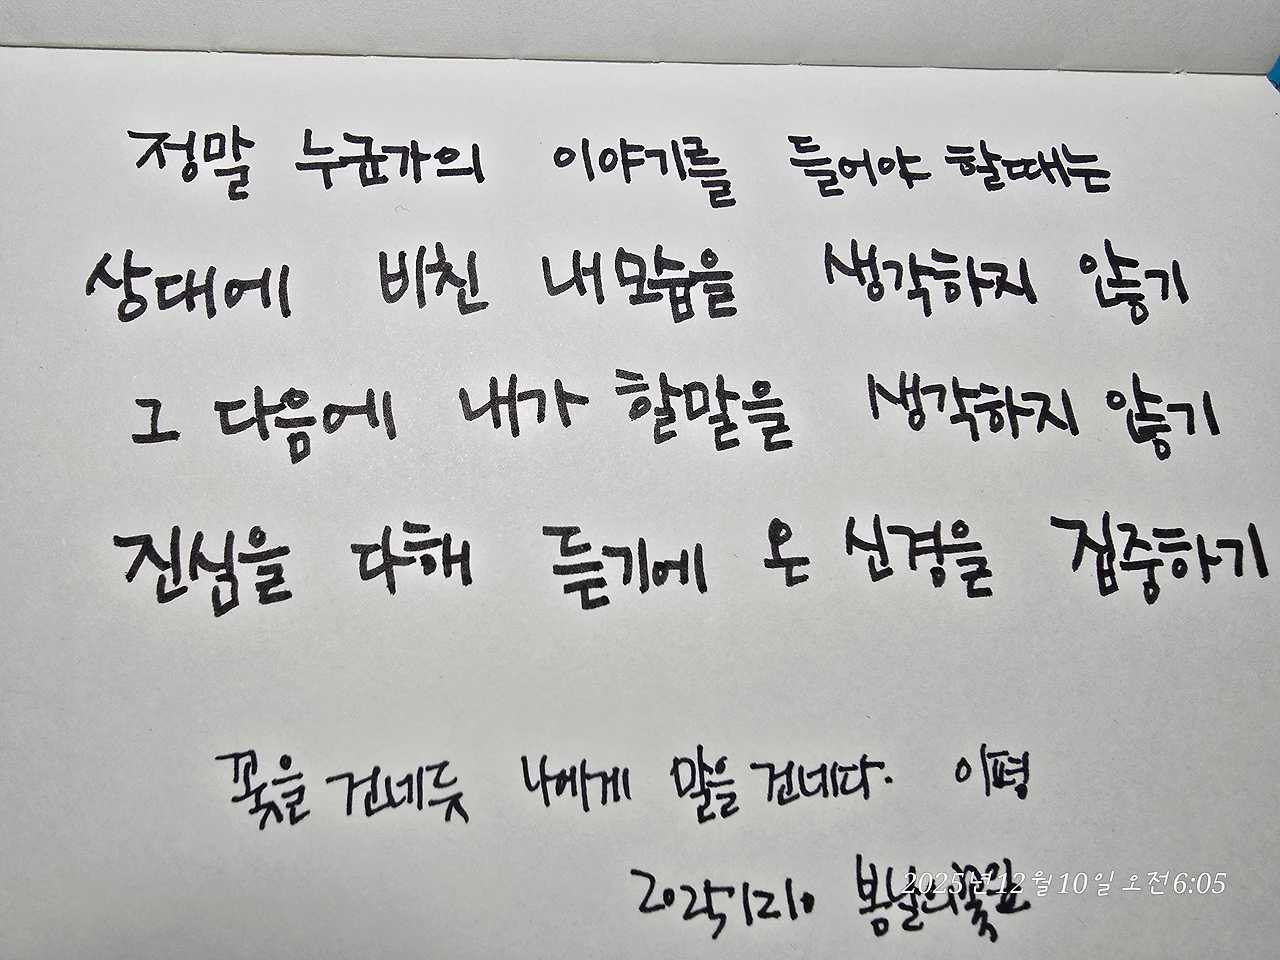 정말 누군가의 이야기를 들어야 할때는
상대에 비친 내모습을 생각하지 않기
그 다음에 내가 할말을 생각하지 않기
진심을 다해 듣기에 온 신경을 집중하기
꽃을 건네듯 나에게 말을 건네다. 이평
20251210 봄날의꽃잎
2025년 12월 10일 오전 6:05